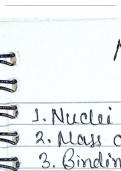 1. Nuclei
2. Mass
3. Bindin